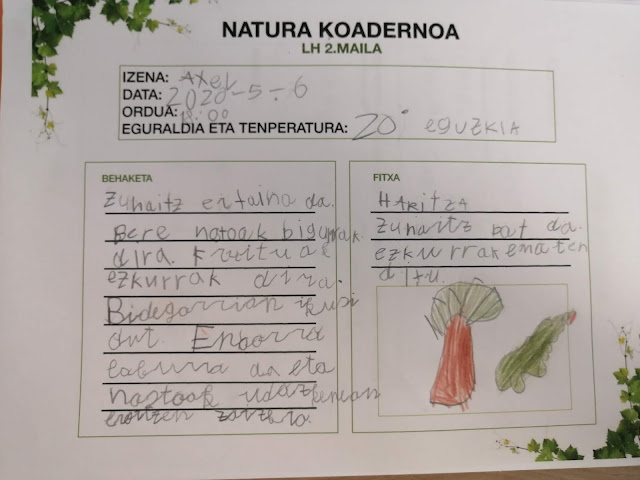 NATURA KOADERNOA
LH 2.MAILA
IZENA: AXel
DATA: 2020-5-6
ORDUA: 18:00
EGURALDIA ETA TENPERATURA: 20° eguzkia
BEHAKETA
Zuhaitz ertaina da.
Bere hotoak bigunak
dira. Fruituak
ezkurrak dira.
Bidegorrian ikusi
dut. Enborra
laburra da eta
hostoak udazkenean
erortzen zaizkio.
FITXA
HARITZA
Zuhaitz bat da.
ezkurrak ematen
ditu.